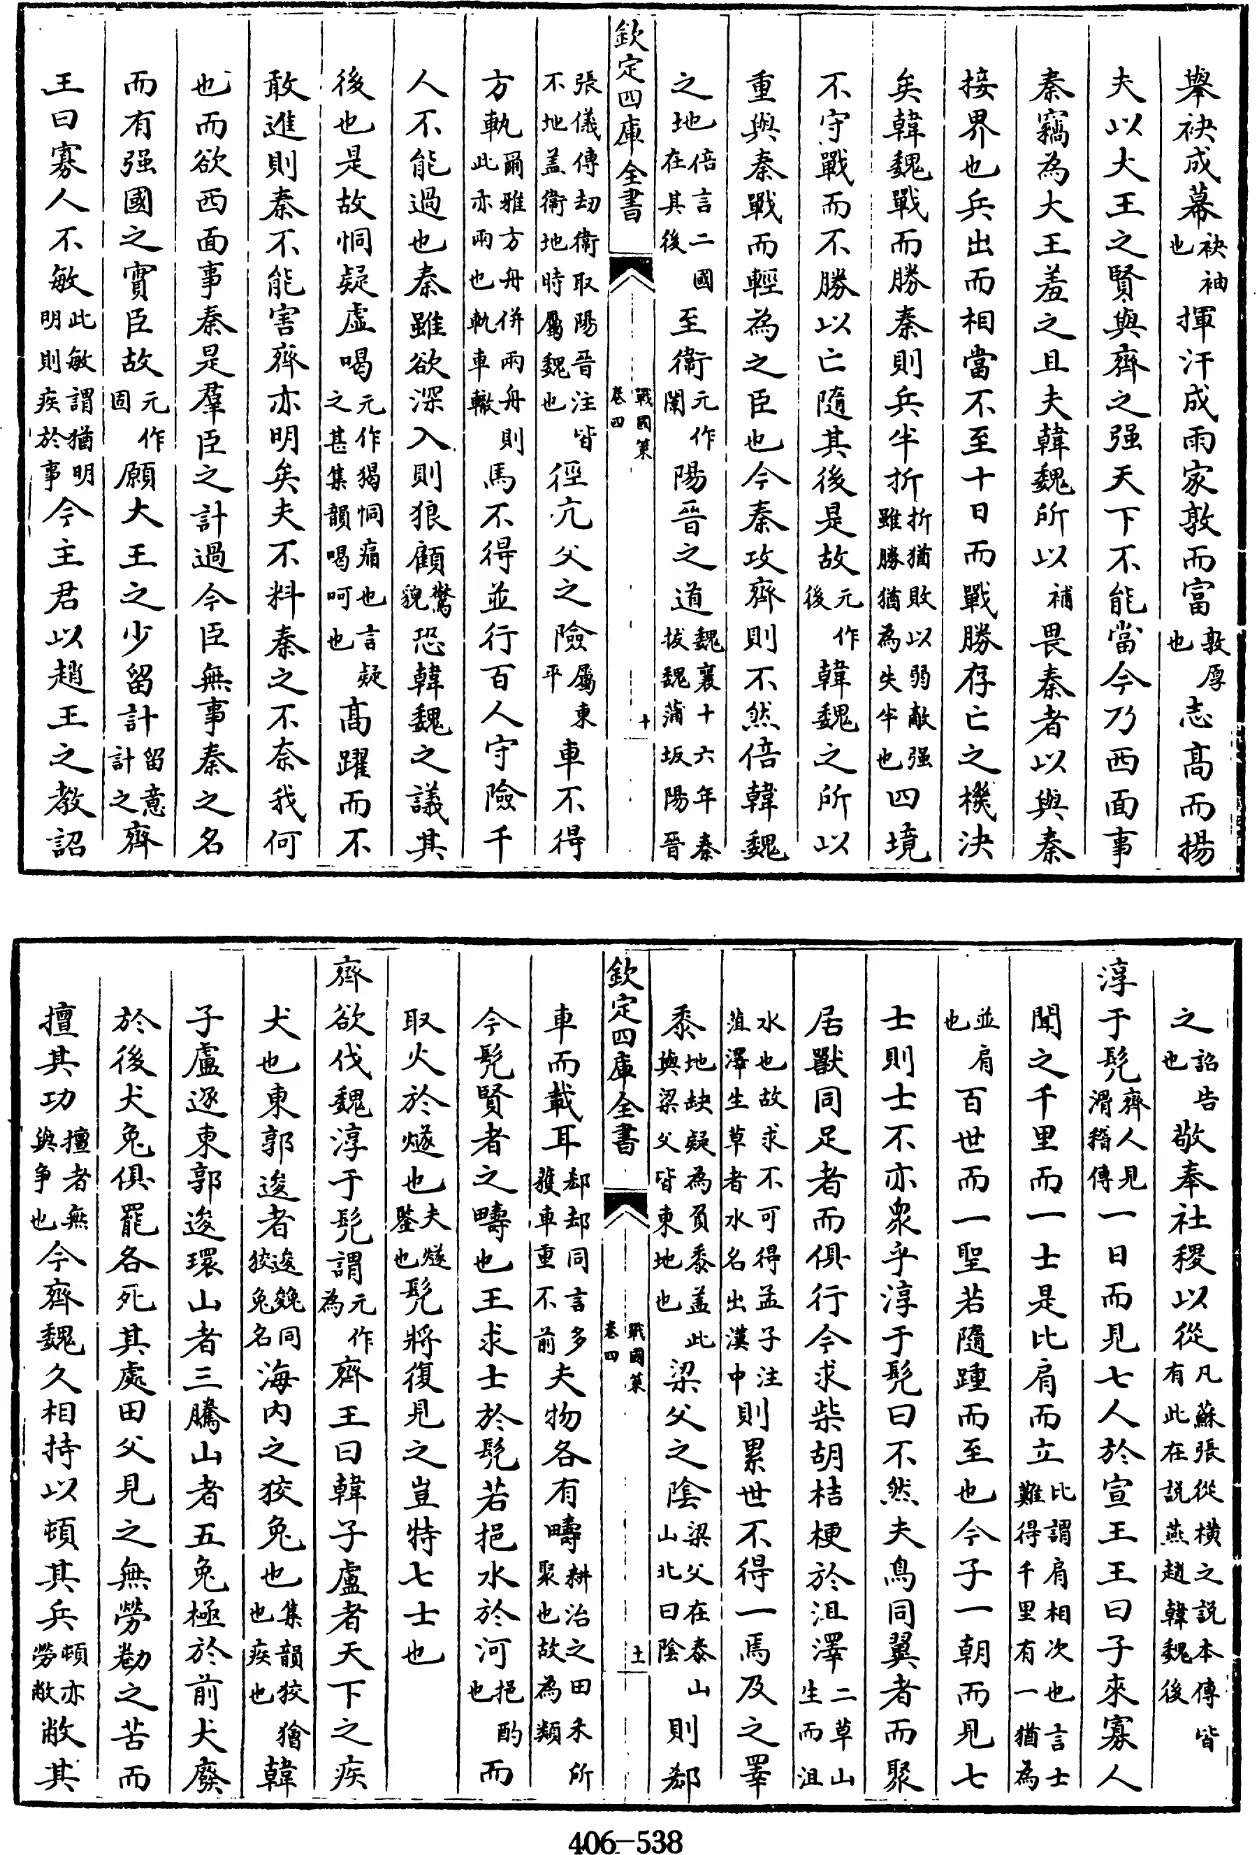 舉袂成幕袂袖也揮汗成雨家敦而富敦厚也志高而揚
夫以大王之賢與齊之强天下不能當今乃西面事
秦竊為大王羞之且夫韓魏所以補畏秦者以與秦
接界也兵出而相當不至十日而戰勝存亡之機決
矣韓魏戰而勝秦則兵半折折猶敗以弱敵强雖勝猶為失半也四境
不守戰而不勝以亡隨其後是故元作後韓魏之所以
重與秦戰而輕為之臣也今秦攻齊則不然倍韓魏
之地倍言二國在其後至衛元作闈陽晉之道魏襄十六年秦拔魏蒲坂陽晉
欽定四庫全書 戰國策 卷四 十
張儀傳刧衛取陽晉注皆不地蓋衛地時屬魏也徑亢父之險屬東平車不得
方軌爾雅方舟併兩舟則此亦兩也軌車轍馬不得並行百人守險千
人不能過也秦雖欲深入則狼顧驚貌恐韓魏之議其
後也是故恫疑虛喝元作猲恫痛也言疑之甚集韻喝呵也高躍而不
敢進則秦不能害齊亦明矣夫不料秦之不奈我何
也而欲西面事秦是羣臣之計過今臣無事秦之名
而有强國之實臣故元作固願大王之少留計留意計之齊
王曰寡人不敏此敏謂猶明明則疾於事今主君以趙王之教詔
之詔告也敬奉社稷以從凡蘇張從橫之説本傳皆有此在説燕趙韓魏後
淳于髠齊人見滑稽傳一日而見七人於宣王王曰子來寡人
聞之千里而一士是比肩而立比謂肩相次也言士難得千里有一猶為
並肩也百世而一聖若隨踵而至也今子一朝而見七
士則士不亦衆乎淳于髠曰不然夫鳥同翼者而聚
居獸同足者而俱行今求柴胡桔梗於沮澤二草山生而沮
水也故求不可得孟子注菹澤生草者水名出漢中則累世不得一焉及之睪
黍地缺疑為負黍蓋此與梁父皆東地也梁父之陰梁父在泰山山北曰陰則郄
欽定四庫全書 戰國策 卷四 十一
車而載耳郄却同言多獲車重不前夫物各有疇耕治之田禾所聚也故為類
今髠賢者之疇也王求士於髠若挹水於河挹酌也而
取火於燧也夫燧鑒也髠將復見之豈特七士也
齊欲伐魏淳于髠謂元作為齊王曰韓子盧者天下之疾
犬也東郭逡者逡㕙同狡兔名海内之狡兔也集韻狡獪也疾也韓
子盧逐東郭逡環山者三騰山者五兔極於前犬廢
於後犬兔俱罷各死其處田父見之無勞勌之苦而
擅其功擅者無與爭也今齊魏久相持以頓其兵頓亦勞敝敝其
406-538